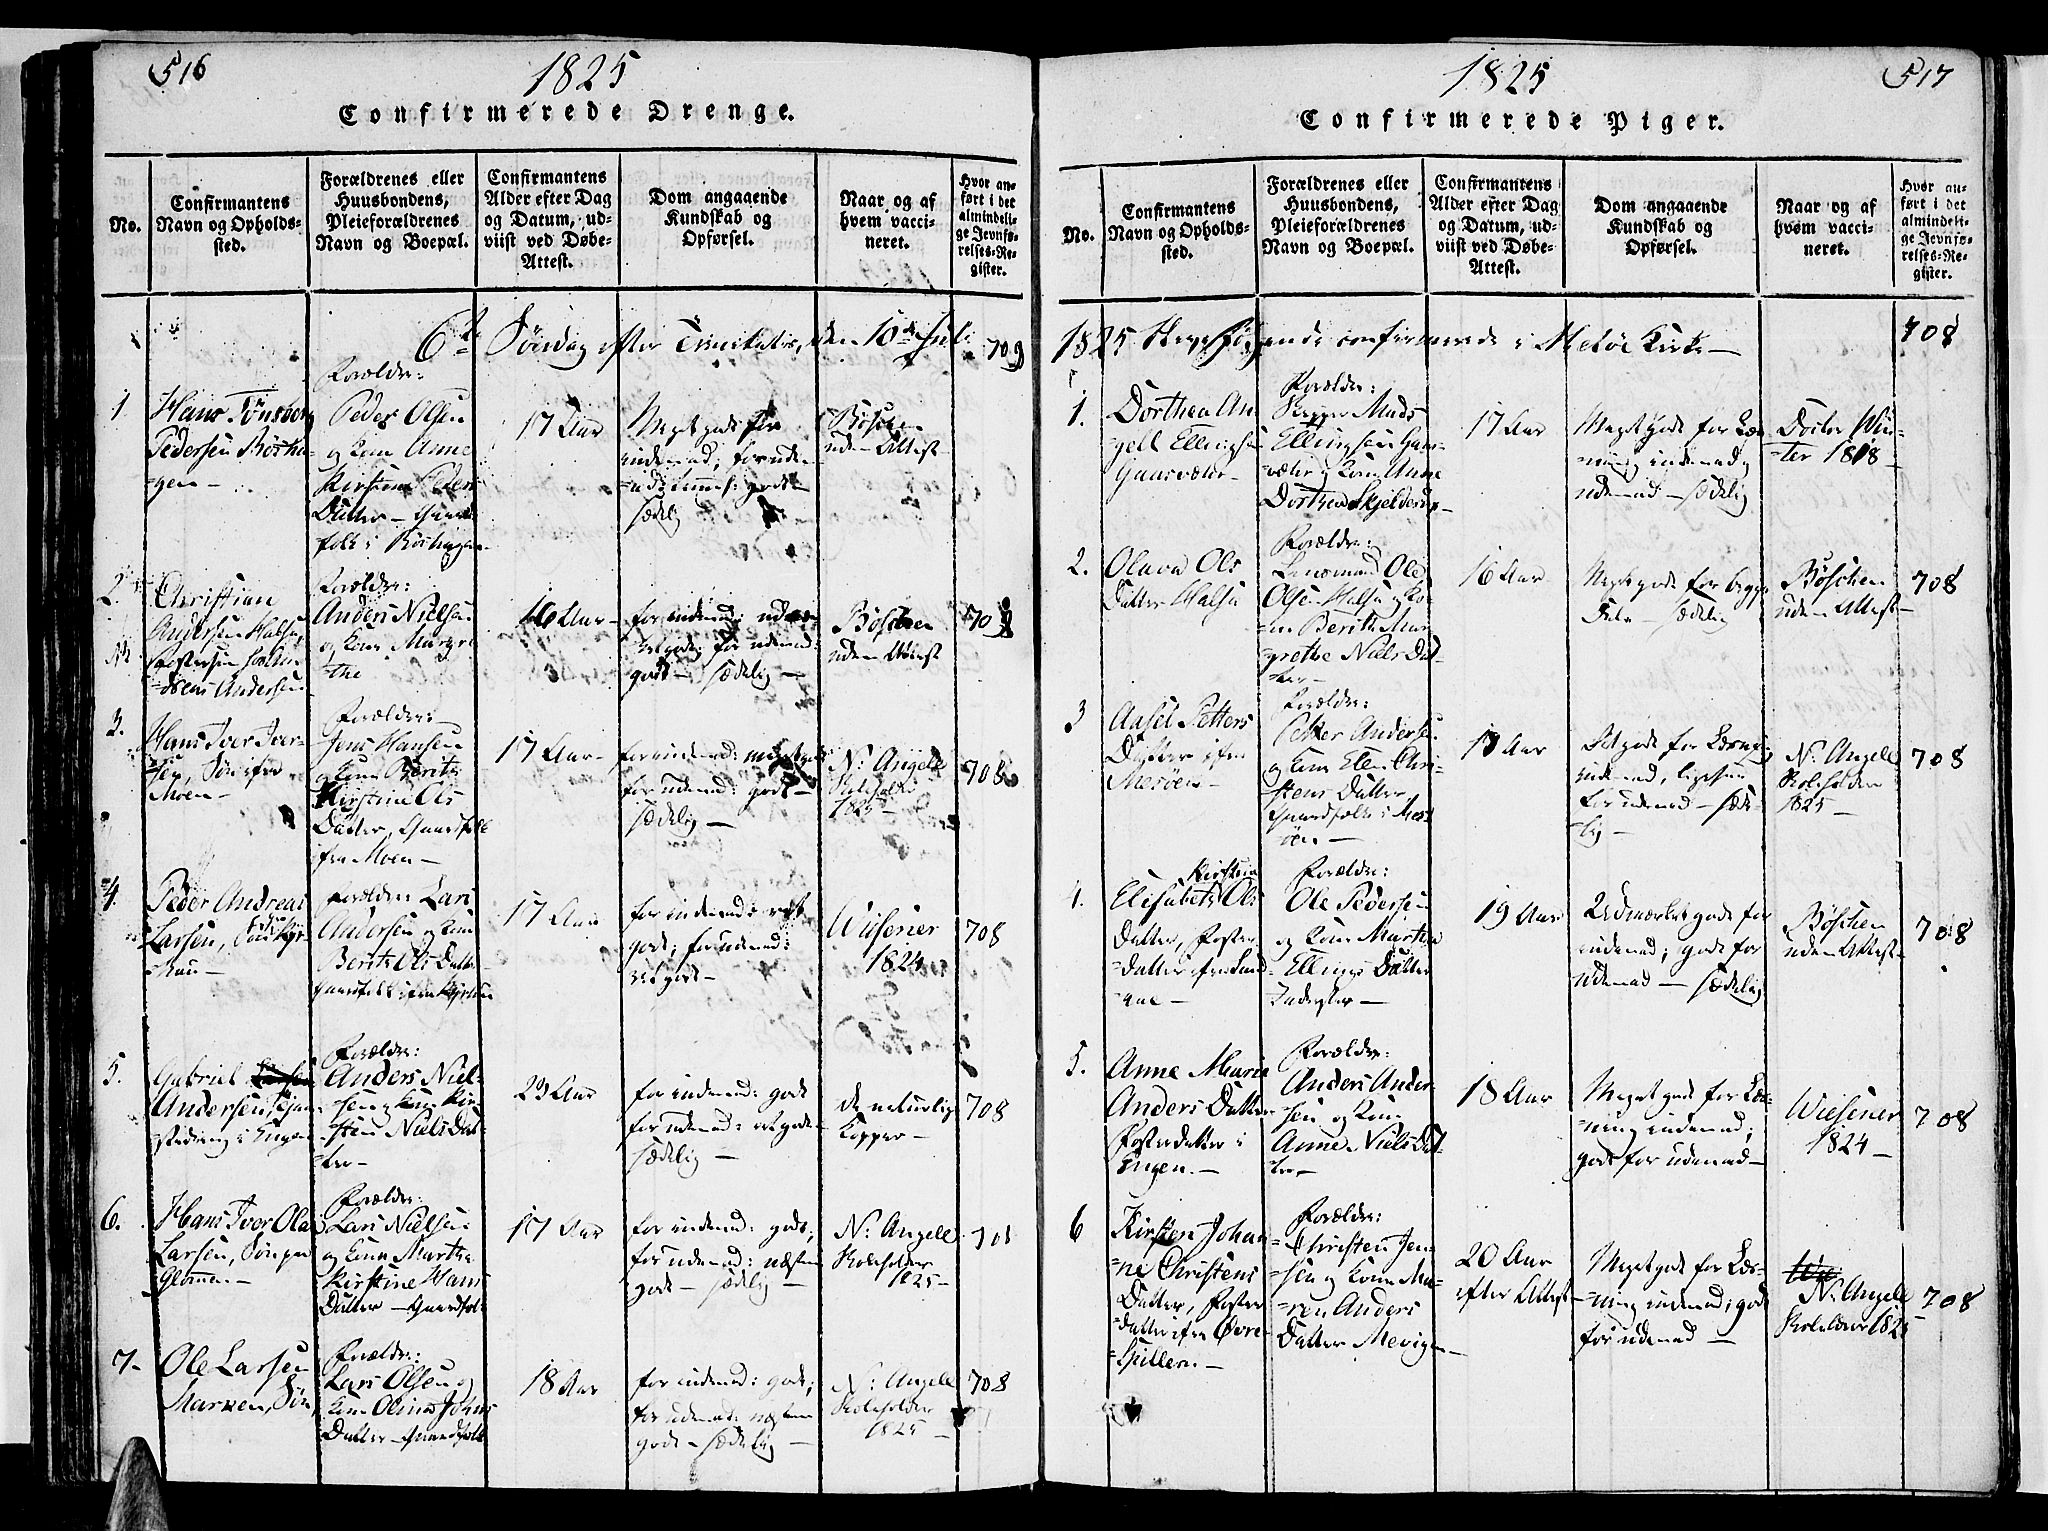 516
1825
Confirmerede Drenge.
No.
Confirmantens
Navn og Opholds-
sted.
Forældrenes eller
Huusbondens,
Pleieforældrenes
Navn og Boepæl.
Confirmantens
Alder efter Dag
og Datum, ud-
viist ved Døbe-
Attest.
Dom angaaende
Kundskab og
Opførsel.
Naar og af
hvem vacci-
neret.
Hvor an-
ført i det
almindeli-
ge Jevnfø-
relses-Re-
gister.
6te Söndag efter Trinitatis, den 10de Juli
709
1.
Hans Tönsberg
Pedersen
Forældre:
Peder Olsen
og Kone Anne
Kirstine Peders
Datter – Gaard-
folk i
17 Aar
Meget godt for
indenad; for uden-
sædelig
Böschen
uden Attest
2.
Christian
Andersen Halsa,
Fostersön
Andersen
Forældre:
Anders Nielsen
og Kone Margre-
the
16 Aar –
for indenad:
for udenad:
godt – sædelig –
Böschen
uden Attest
3.
Hans Iver Iver-
sen, Sön ifra
Moen –
Forældre:
Jens Hansen
og Kone Berith
Kirstine Ols
Datter, Gaardfolk
ifra Moen –
17 Aar –
for indenad: meget godt
for udenad: godt –
sædelig –
N: Angell
Skoleholder
1825 –
708
4.
Peder Andreas
Larsen, Sön
Forældre: Lars
Andersen og Kone
Berith Ols Datter
Gaardfolk ifra
17 Aar
for indenad: ret
godt; for udenad:
ret godt –
Wiesener
1824
708
5.
Gabriel
Andersen,
i Engen
Forældre:
Anders Niel-
sen og Kone Kir-
sten Niels Dat-
ter –
23 Aar
for indenad: godt
for udenad: ret godt –
sædelig –
de naturlige
Kopper –
708
6.
Hans Iver Ola
Larsen, Sön paa
Glomen –
Forældre:
Lars Nielsen
og Kone Martha
Kirstine Hans
Datter – Gaardfol-
17 Aar
for indenad: godt;
for udenad: næsten
godt – sædelig –
N: Angell
Skoleholder
1825 –
7 –
Ole Larsen
Marken, Sön
Forældre:
Lars Olsen og
Kone Olina Johns
Datter – Gaardfolk
18 Aar
for indenad: godt;
for udenad: næsten
godt – sædelig –
N: Angell
Skoleholder
1825 –
708
1825
517
Confirmerede Piger.
No.
Confirmantens
Navn og Opholds-
sted.
Forældrenes eller
Huusbondens,
Pleieforældrenes
Navn og Boepæl.
Confirmantens
Alder efter Dag
og Datum, ud-
viist ved Døbe-
Attest.
Dom angaaende
Kundskab og
Opførsel.
Naar og af
hvem vacci-
neret.
Hvor an-
ført i det
almindeli-
ge Jevnfø-
relses-Re-
gister.
1825 confirmerede i Melöe Kirke –
708
1.
Dorthea An-
gell Ellingsen
Gaasvær –
Forældre:
Mads
Ellingsen Gaas-
vær og Kone Anne
Dorthea Skjelderup –
17 Aar
Meget godt for Læs-
ning indenad og
udenad – sædelig
Doctor Win-
ter 1818 –
2.
Olava Ols
Datter Halsa
Forældre:
Lensmand Ole
Olsen Halsa og Ko-
ne Berith Mar-
grethe Niels Dat-
ter –
16 Aar
Meget godt for begge
Dele – sædelig
Böschen
uden Attest –
708
3
Aasel Petters
Datter ifra
Mesöen –
Forældre:
Petter Andersen
og Kone Elen Chri-
stens Datter
Gaardfolk i Mes-
öen –
Aar
Ret godt for Læsning
indenad, ligesaa
for udenad – sæde-
lig –
N: Angell
Skoleholder
1825 –
708
4.
Kirstine
Elisabeth Ols
Datter, Foster-
datter ifra
Forældre:
Ole Pedersen
og Kone Martha
Ellings Datter
19 Aar
Udmærket godt for
indenad; godt for
udenad – sædelig
Böschen
uden Attest –
708
5.
Anne Marie
Anders Datter
Fosterdatter i
Engen. –
Forældre:
Anders Ander-
sen og Kone
Anne Niels Dat-
ter –
18 Aar
Meget godt for Læs-
ning indenad;
godt for udenad –
Wiesener
1824 –
708
6
Kirsten Johan-
ne Christens
Datter, Foster-
datter ifra Øvre-
Spilleren. –
Forældre:
Christen Jen-
sen og Kone Ma-
ren Anders
Datter
20 Aar
efter Attest –
Meget godt for Læs-
ning indenad; godt
for udenad –
N: Angell
Skoleholder 1825 –
708